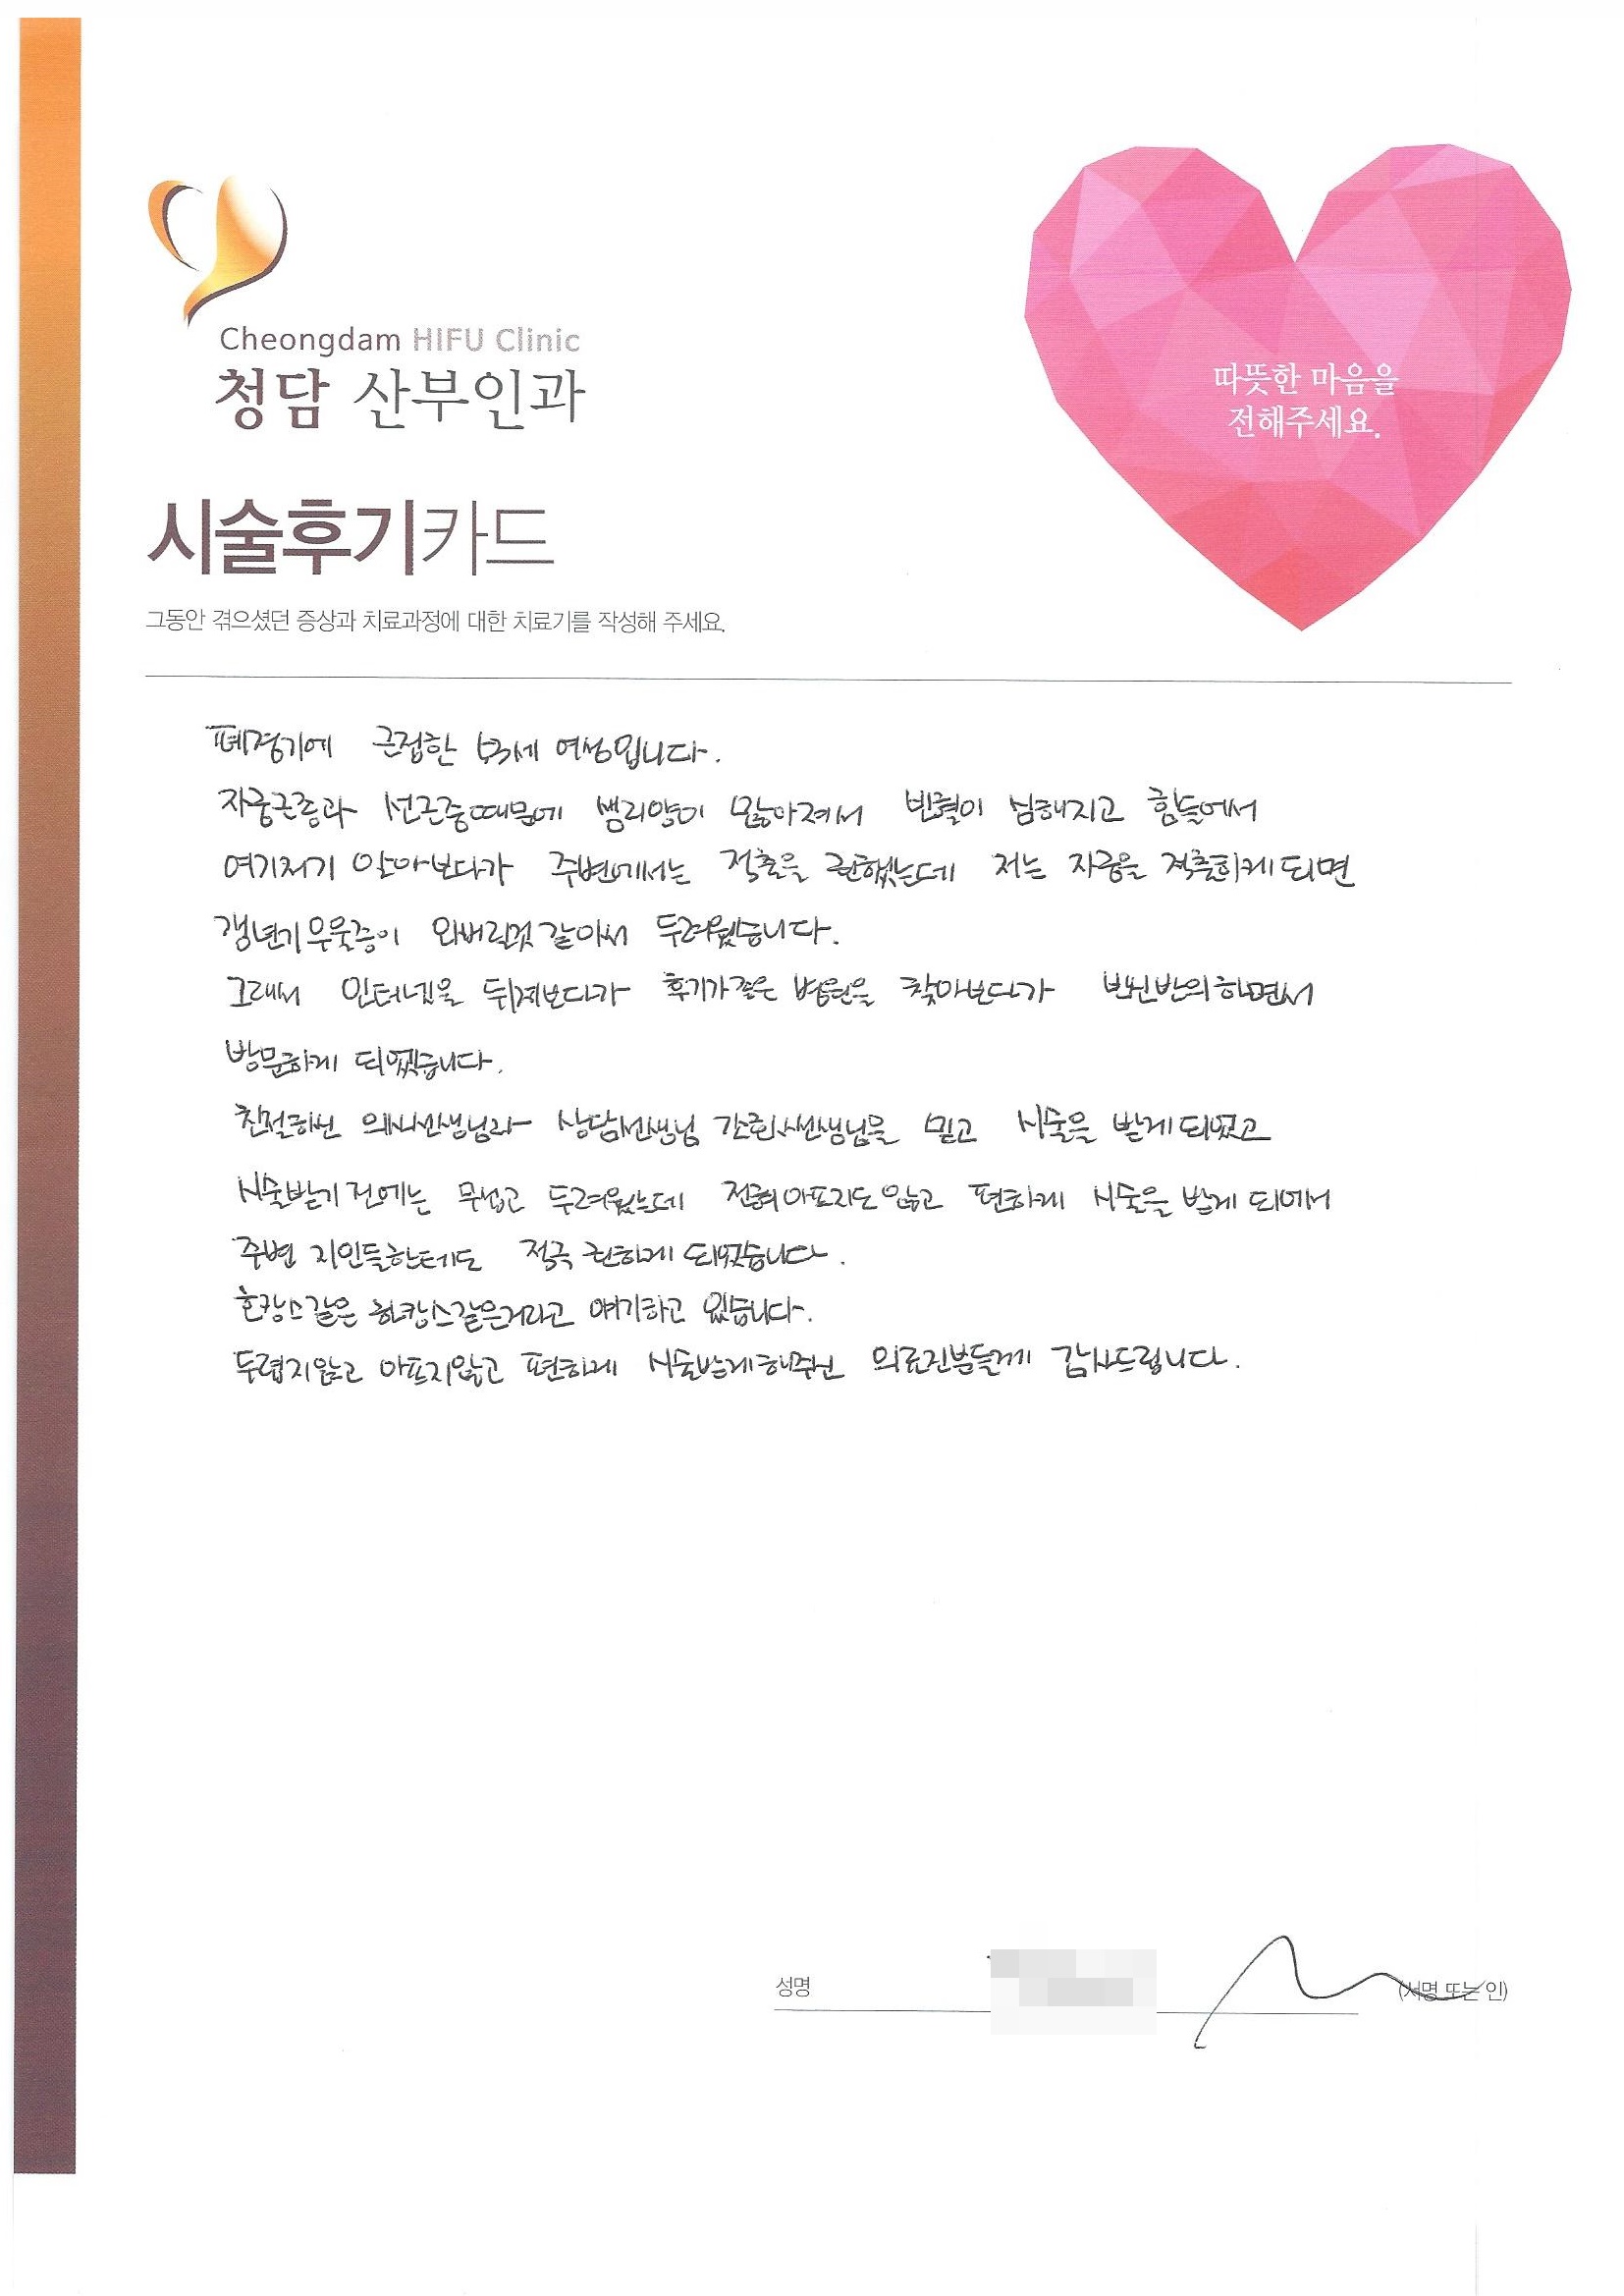 Cheongdam HIFU Clinic
청담 산부인과
따뜻한 마음을
전해주세요.
시술후기카드
그동안 겪으셨던 증상과 치료과정에 대한 치료기를 작성해 주세요.
폐경기에 근접한 53세 여성입니다.
자궁근종과 선근증때문에 생리양이 많아져서 빈혈이 심해지고 힘들어서
여기저기 알아보다가 주변에서는 적출을 권했는데 저는 자궁을 적출하게되면
갱년기우울증이 와버릴것 같아서 두려웠습니다.
그래서 인터넷을 뒤져보다가 후기가좋은 병원을 찾아보다가 반신반의하면서
방문하게 되었습니다.
친절하신 의사선생님과 상담선생님 간호사선생님을 믿고 시술을 받게되었고
시술받기전에는 무섭고 두려웠는데 전혀아프지도않고 편하게 시술을 받게되어서
주변 지인들한테도 적극 권하게 되었습니다.
호캉스같은 하캉스같은거라고 얘기하고 있습니다.
두렵지않고 아프지않고 편하게 시술받게해주신 의료진분들께 감사드립니다.
성명
(서명 또는 인)